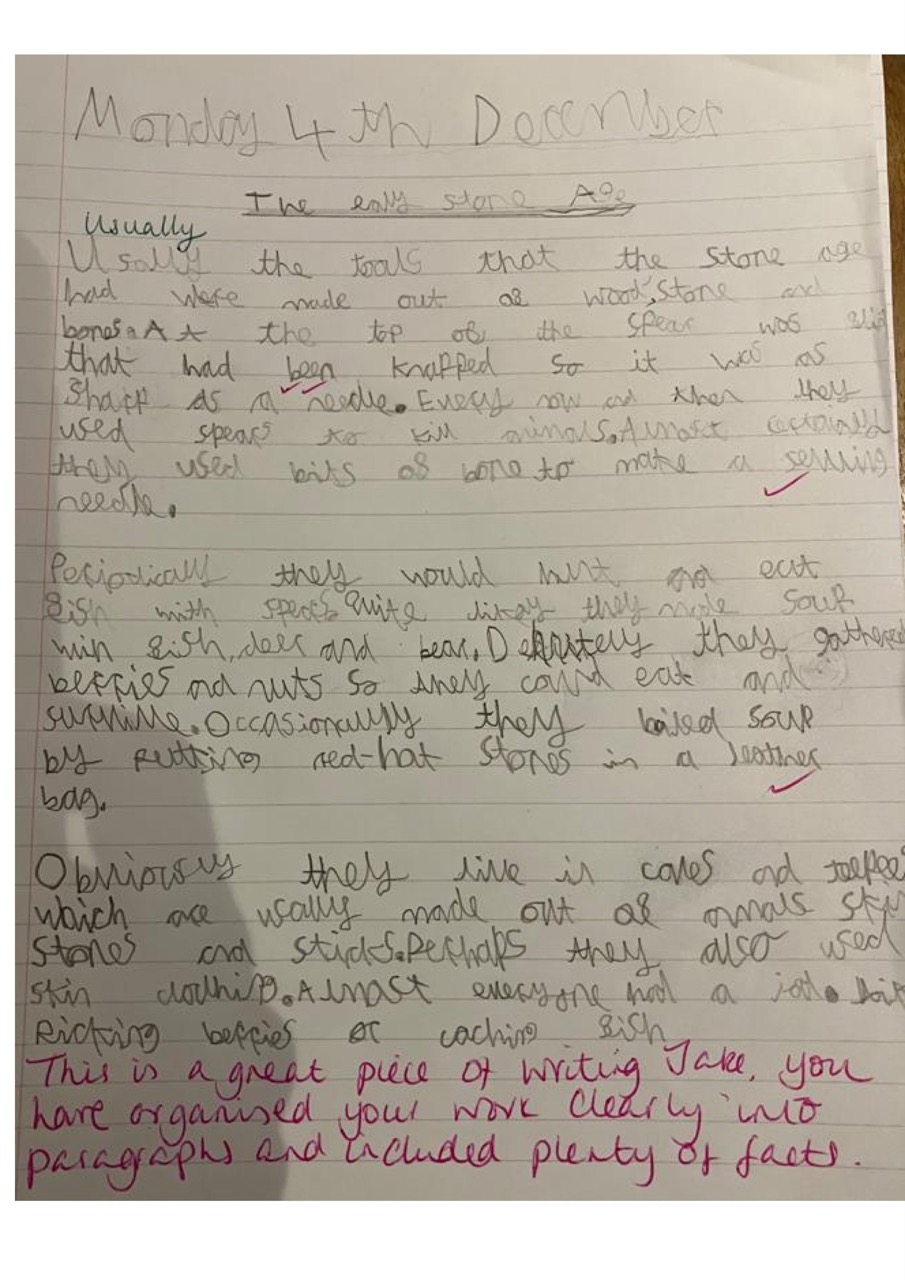 Monday 4th December
The ealy stone Age
Usually
Usally the tools that the stone age
had were made out of wood, stone and
bones. A the top of the spear was
that had been knapped so it was as
sharp as a needle. Every now and then they
used spears to kill animals. Almost certainly
they used bits of bone to make a
needle.
Periodically they would hunt and eat
fish with spears. Quite they made soup
fish, deer and bear. they gathered
berries and nuts so they could eat and
Occasionally they boiled soup
by putting red-hot stones in a leather
bag.
they live in caves and
which are usally made out of skin
stones and sticks. Perhaps they also used
skin Almost everyone had a
Picking berries or caching fish
This is a great piece of writing Jake, you
have organised your work clearly into
paragraphs and included plenty of facts.